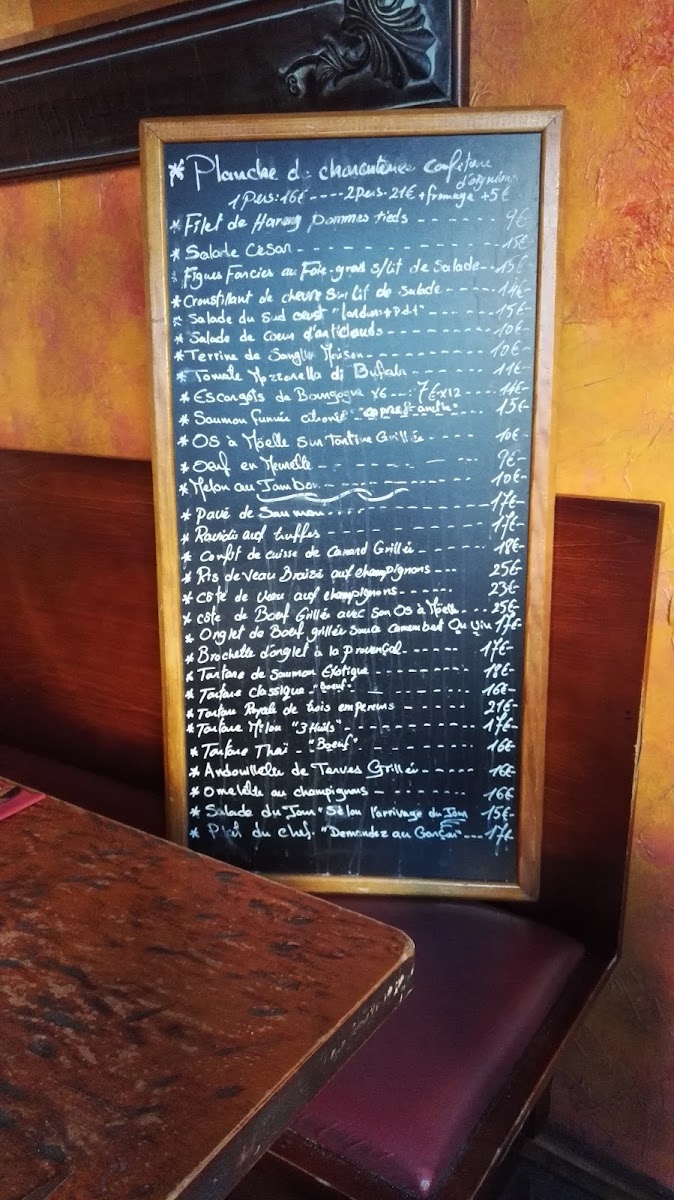 * Planche de charcuterie confiture
d'oignions
1 Pers: 16€ ---- 2 pers. 21€ + fromage +5€
* Filet de Hareng pommes tieds ------ 9€
* Salade César ------ 15€
* Figues Farcies au Foie-gras s/lit de Salade -- 15€
* Croustillant de chèvre sur lit de Salade ---- 14€
* Salade du Sud ouest "lardons + P.d.t" ---- 15€
* Salade de coeur d'artichauds ---- 10€
* Terrine de Sanglier Maison ---- 10€
* Tomate Mozzarella di Bufala ---- 11€
* Escargots de Bourgogne x6 --- 7€ x12 --- 14€
* Saumon fumée citronné "aneth" --- 15€
* OS à Möelle sur Tartine Grillée --- 10€
* Oeuf en Meurette --- 9€
* Melon au Jambon --- 10€
* Pavé de Saumon ------ 17€
* Raviolis aux truffes ------ 17€
* Confit de cuisse de Canard Grillée ---- 18€
* Ris de veau Braisé aux champignons --- 25€
* Côte de veau aux champignons ---- 23€
* côte de Boeuf Grillée avec son OS à Möelle --- 25€
* Onglet de Boeuf grillée sauce camembert Ou Vin 17€
* Brochette d'onglet à la provençal --- 17€
* Tartare de Saumon Exotique ---- 18€
* Tartare classique - "Boeuf" ---- 16€
* Tartare Royale de trois empereurs ---- 21€
* Tartare Milan "3 Huils" ---- 17€
* Tartare Thaï - "Boeuf" ---- 16€
* Andouillette de Tanves Grillée ---- 16€
* Omelette au champignons ---- 16€
* Salade du Jour "Selon l'arrivage du Jour 15€
* Plat du chef. "Demandez au Garçon" --- 17€